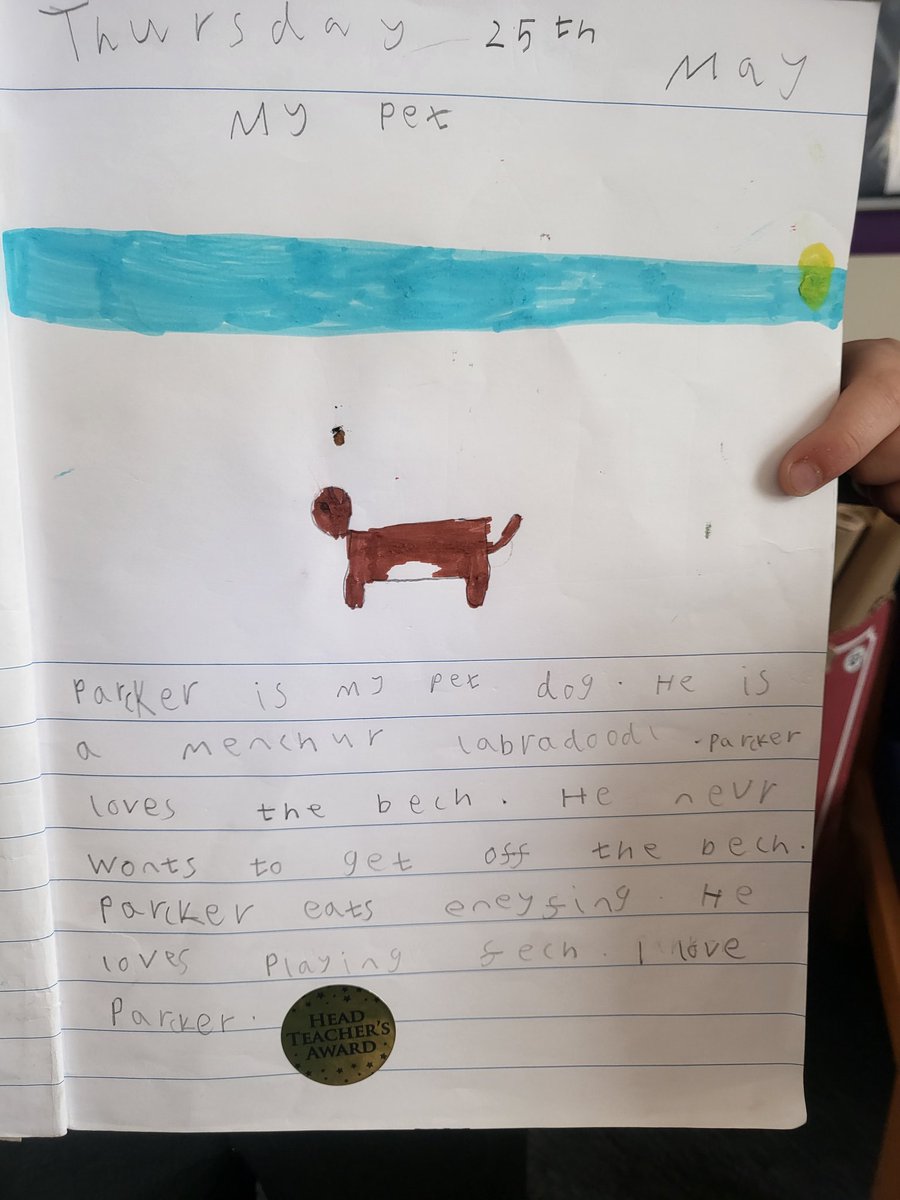 Thursday 25th
May
My pet
Parcker is my pet dog. He is
a menchur labradoodl. Parcker
loves the bech. He nevr
wonts to get off the bech.
Parcker eats eneyfing. He
loves playing fech. I love
Parcker.
HEAD
TEACHER'S
AWARD